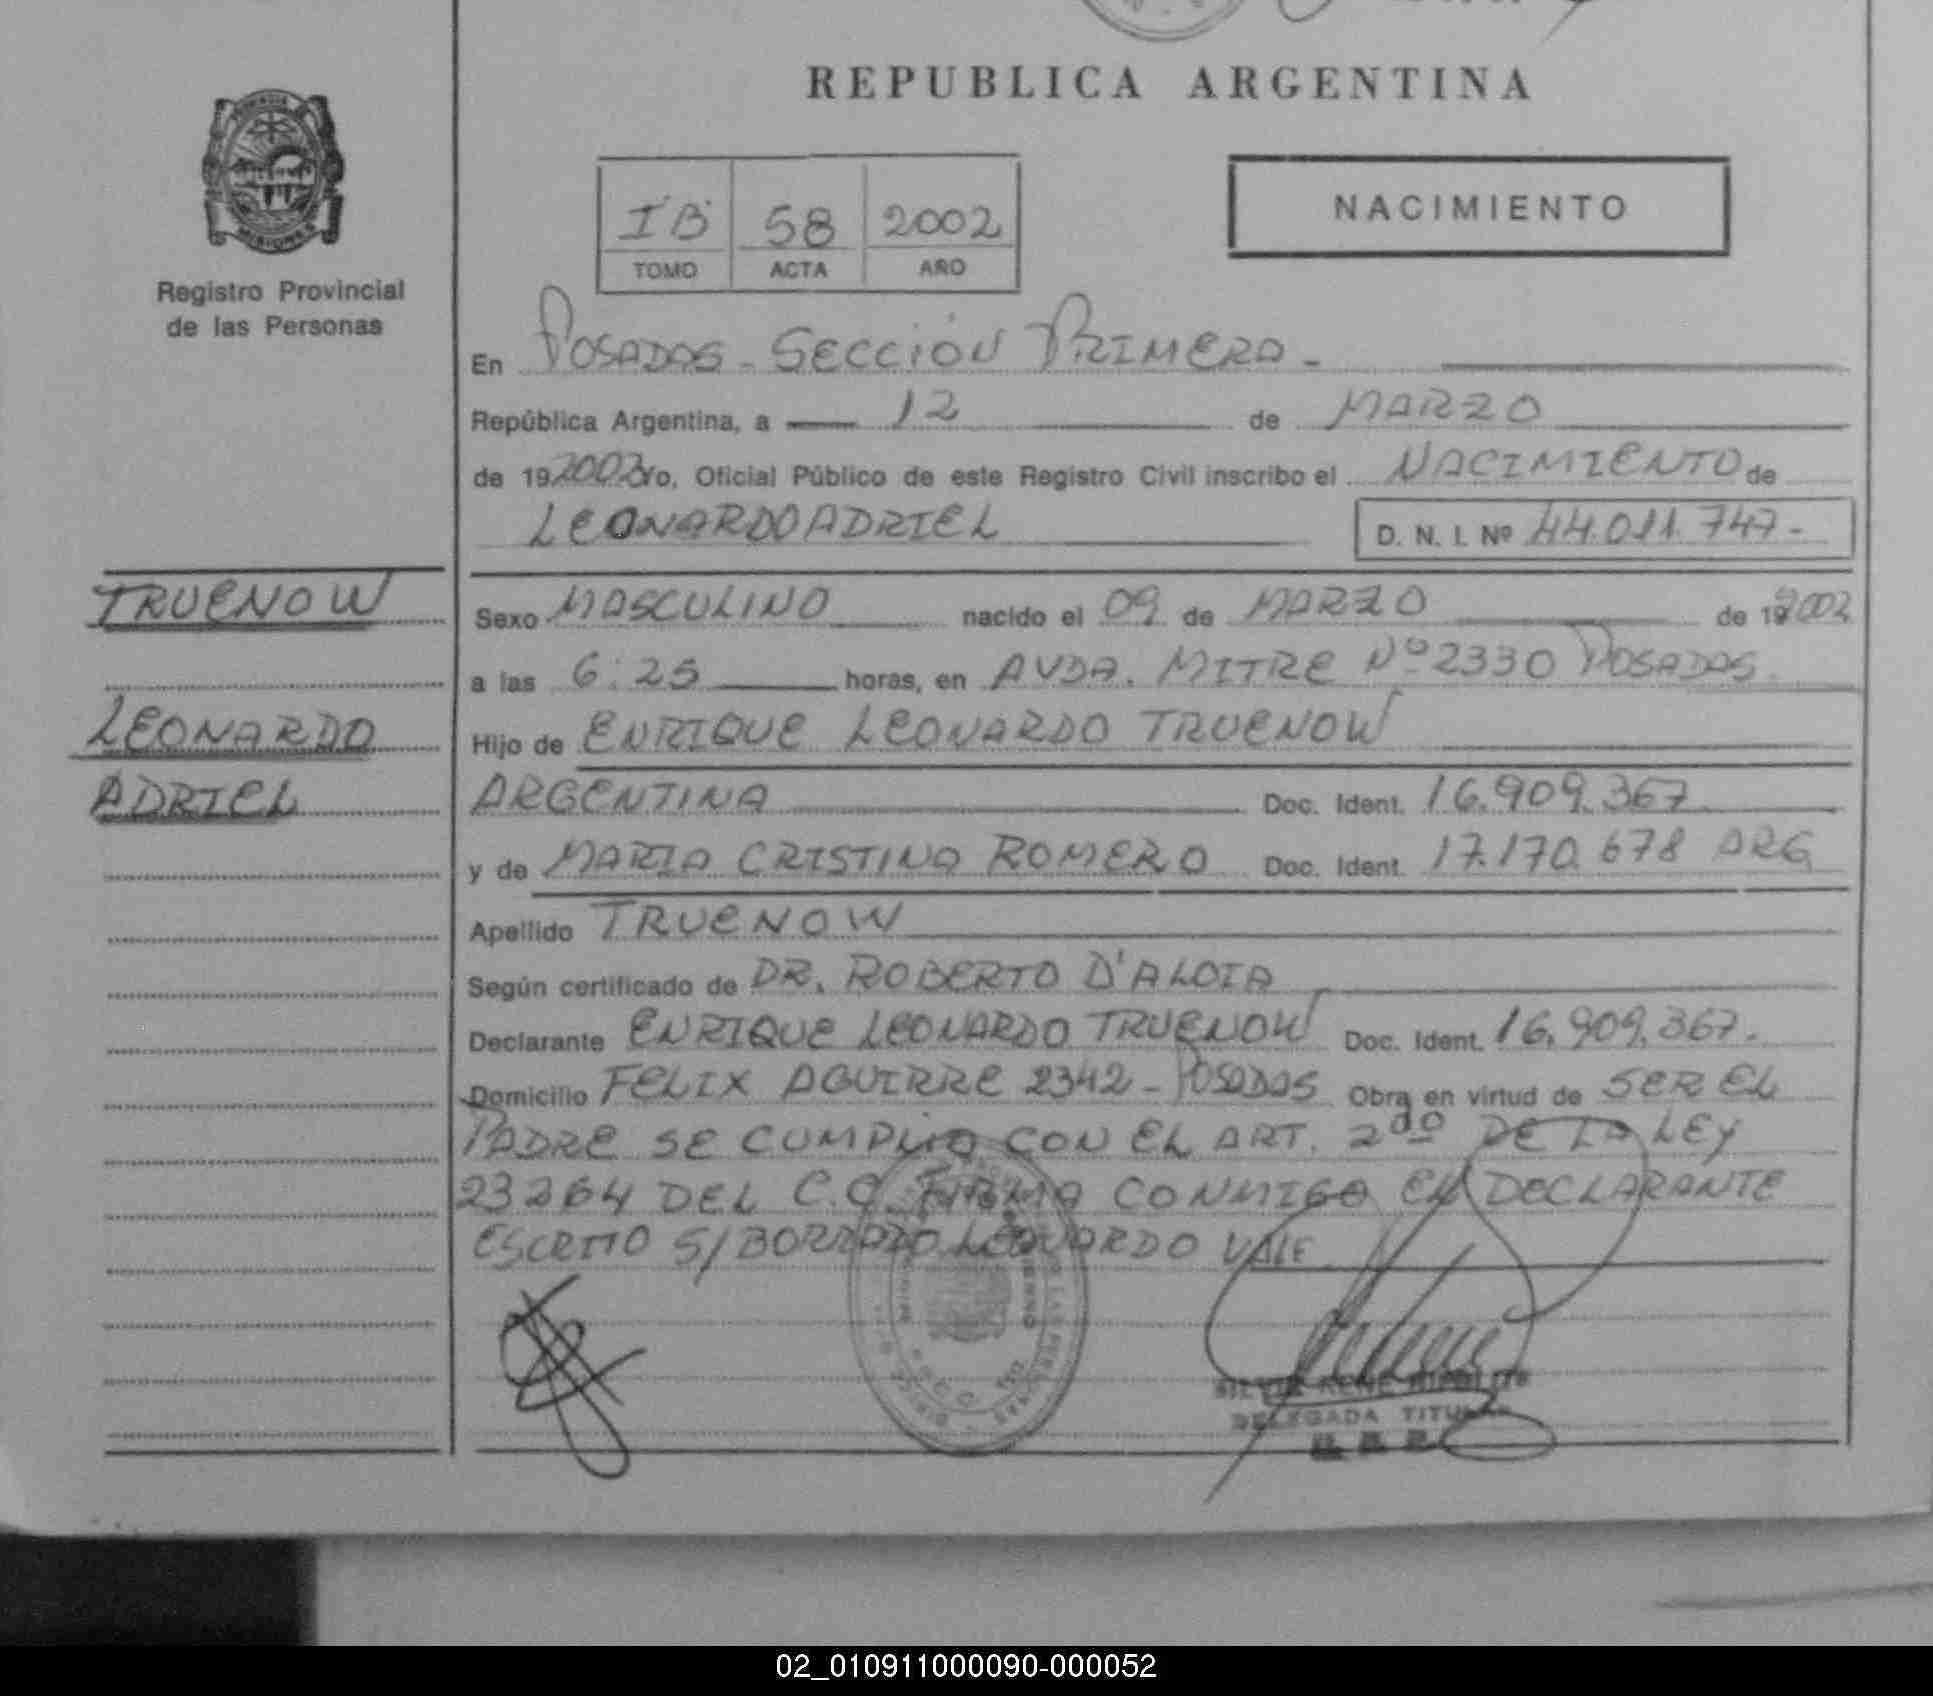 REPUBLICA ARGENTINA
MISIONES
Registro Provincial
de las Personas
IB 58 2002
TOMO ACTA AÑO
NACIMIENTO
En POSADAS - SECCIÓN PRIMERA -
República Argentina, a 12 de MARZO
de 192002 Yo, Oficial Público de este Registro Civil inscribo el NACIMIENTO de
LEONARDO ADRIEL D. N. I. Nº 44.011.747-
TRUENOW
LEONARDO
ADRIEL
Sexo MASCULINO nacido el 09 de MARZO de 192002
a las 6:25 horas, en AVDA. MITRE Nº 2330 POSADAS.
Hijo de ENRIQUE LEONARDO TRUENOW
ARGENTINA Doc. Ident. 16.909.367
y de MARIA CRISTINA ROMERO Doc. Ident. 17.170.678 ARG
Apellido TRUENOW
Según certificado de DR. ROBERTO D'ALOIA
Declarante ENRIQUE LEONARDO TRUENOW Doc. Ident. 16.909.367.
Domicilio FELIX AGUIRRE 2342 - POSADAS Obra en virtud de SER EL
PADRE SE CUMPLIO CON EL ART. 2do DE LA LEY
23264 DEL C.C. FIRMA CONMIGO EL DECLARANTE
ESCRITO S/BORRADO LEONARDO VALE
DELEGADA TITULAR
02_010911000090-000052